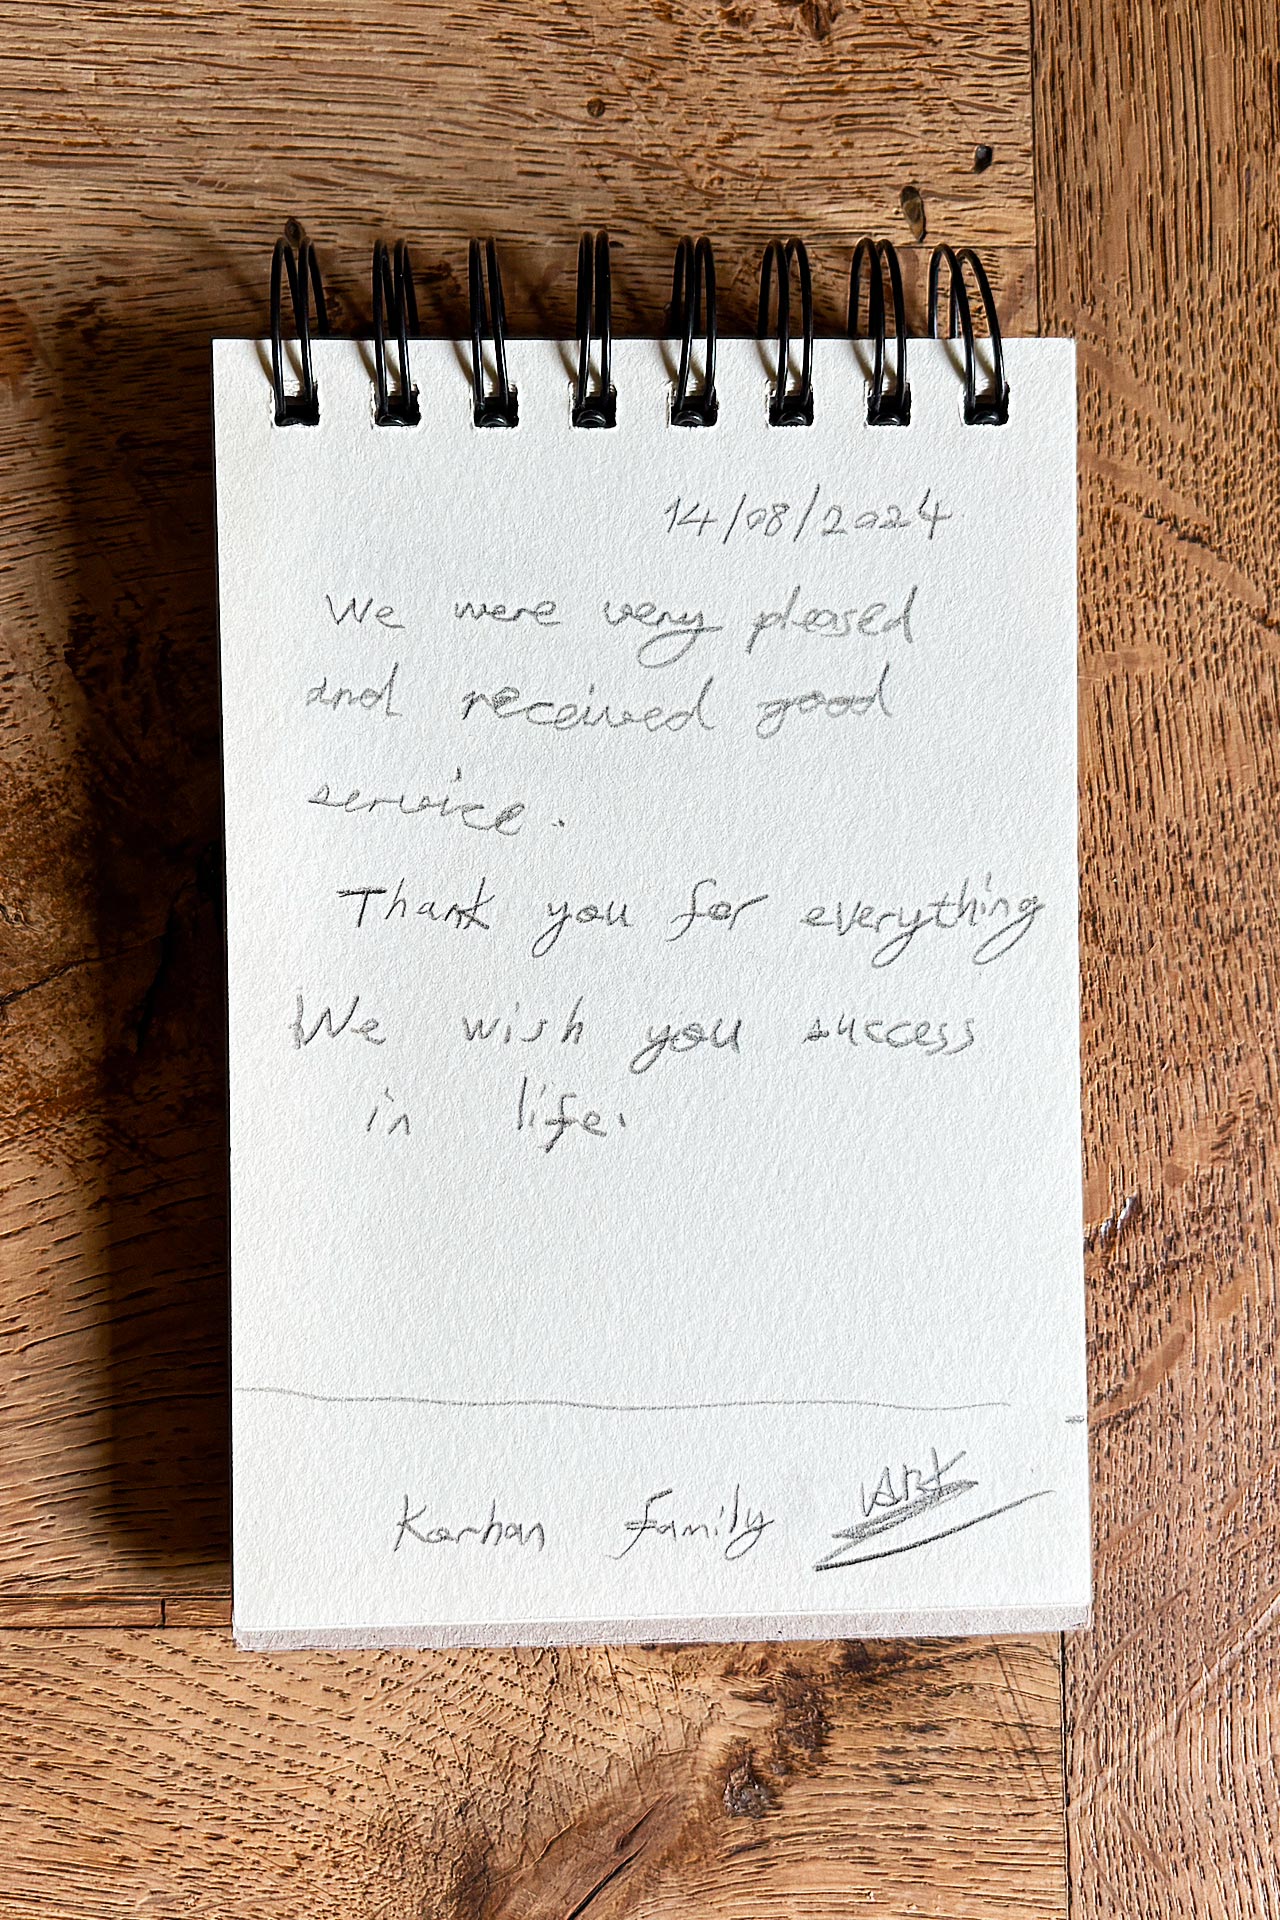 14/08/2024
We were very pleased
and received good
service.
Thank you for everything
We wish you success
in life.
Karhan Family